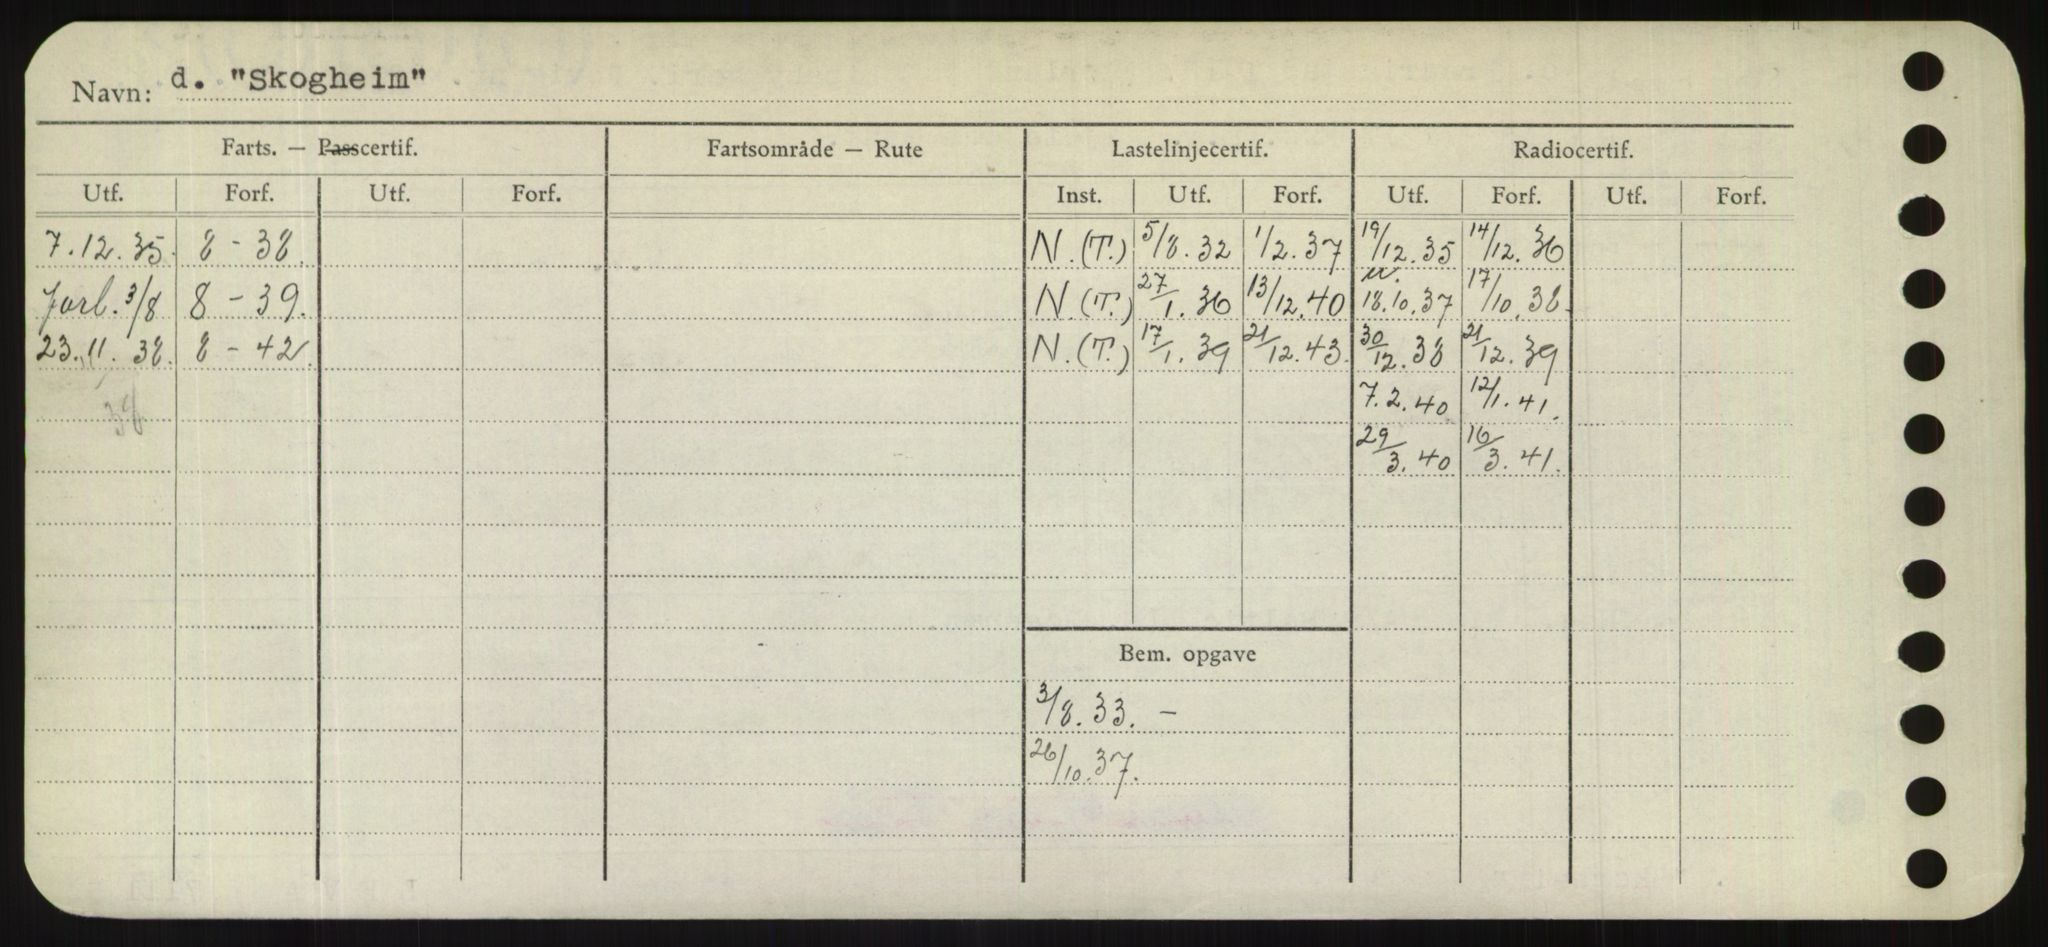 Navn: d. "Skogheim"
Farts. — Passcertif. Fartsområde — Rute Lastelinjecertif. Radiocertif.
Utf. Forf. Utf. Forf. Inst. Utf. Forf. Utf. Forf. Utf. Forf.
7.12.35. 8 - 38. N. (T.) 5/8. 32 1/2. 37 19/12. 35 14/12. 36
forl. 3/8 8 - 39. N. (T.) 27/1. 36 13/12. 40 18.10.37 17/10. 38.
23.11.38. 8 - 42. N. (T.) 17/1. 39 21/12. 43. 30/12. 38 21/12. 39
38 7.2.40 12/1. 41.
29/3. 40 16/3. 41.
Bem. opgave
3/8. 33. —
26/10. 37.